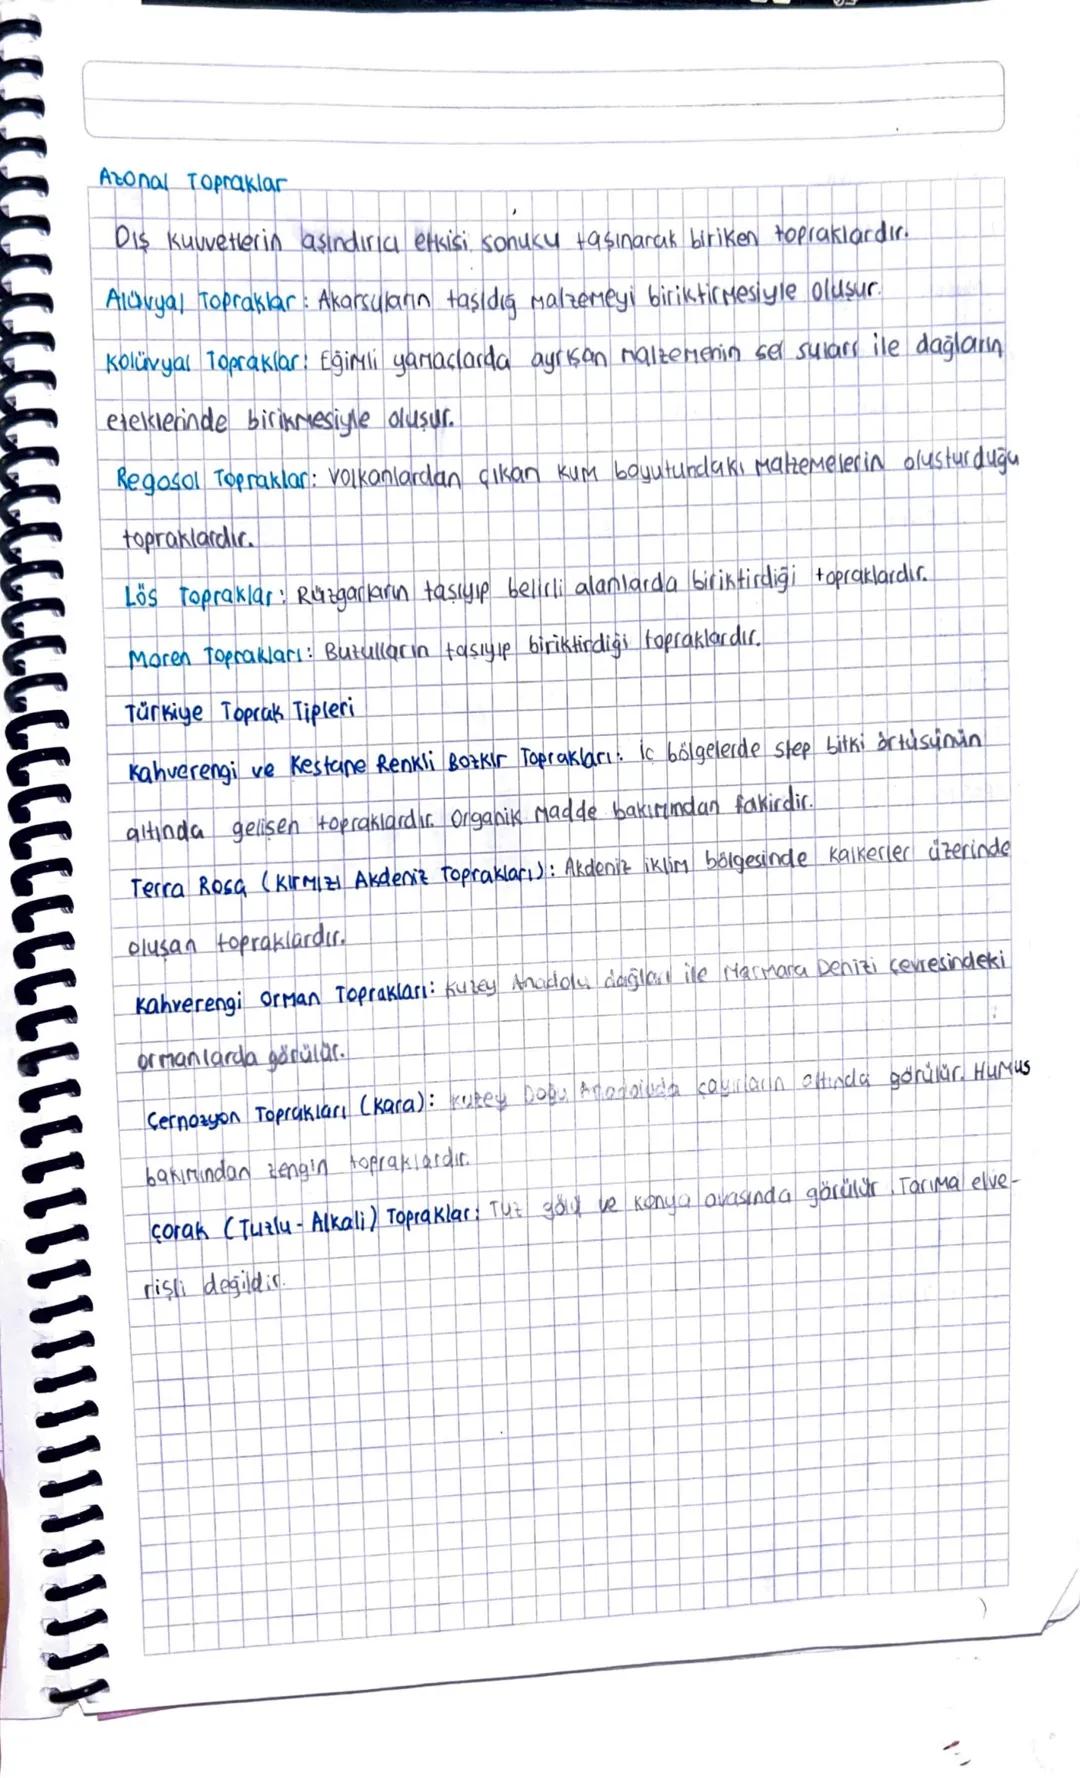 Azonal Topraklar
Dış kuvvetlerin aşındırıcı etkisi sonucu taşınarak biriken topraklardır.
Alüvyal Topraklar: Akarsuların taşıdığ malzemeyi biriktirmesiyle oluşur.
Kolüvyal Topraklar: Eğimli yamaçlarda ayrışan malzemenin sel suları ile dağların
eteklerinde birikmesiyle oluşur.
Regosol Topraklar: Volkanlardan çıkan kum boyutundakı malzemelerin oluşturduğu
topraklardır.
Lös Topraklar: Rüzgarların taşıyıp belirli alanlarda biriktirdiği topraklardır.
Moren Toprakları: Buzulların taşıyıp biriktirdiği topraklardır.
Türkiye Toprak Tipleri
Kahverengi ve Kestane Renkli Bozkır Toprakları: İç bölgelerde step bitki örtüsünün
altında gelişen topraklardır. Organik madde bakımından fakirdir.
Terra Rosa (Kırmızı Akdeniz Toprakları): Akdeniz iklim bölgesinde kalkerler üzerinde
oluşan topraklardır.
Kahverengi Orman Toprakları: Kuzey Anadolu dağları ile Marmara Denizi çevresindeki
ormanlarda görülür.
Çernozyon Toprakları (Kara): Kuzey Doğu Anadoluda çayırların altında görülür. Humus
bakımından zengin topraklardır.
Çorak (Tuzlu - Alkali) Topraklar: Tuz gölü ve Konya ovasında görülür. Tarıma elve-
rişli değildir.